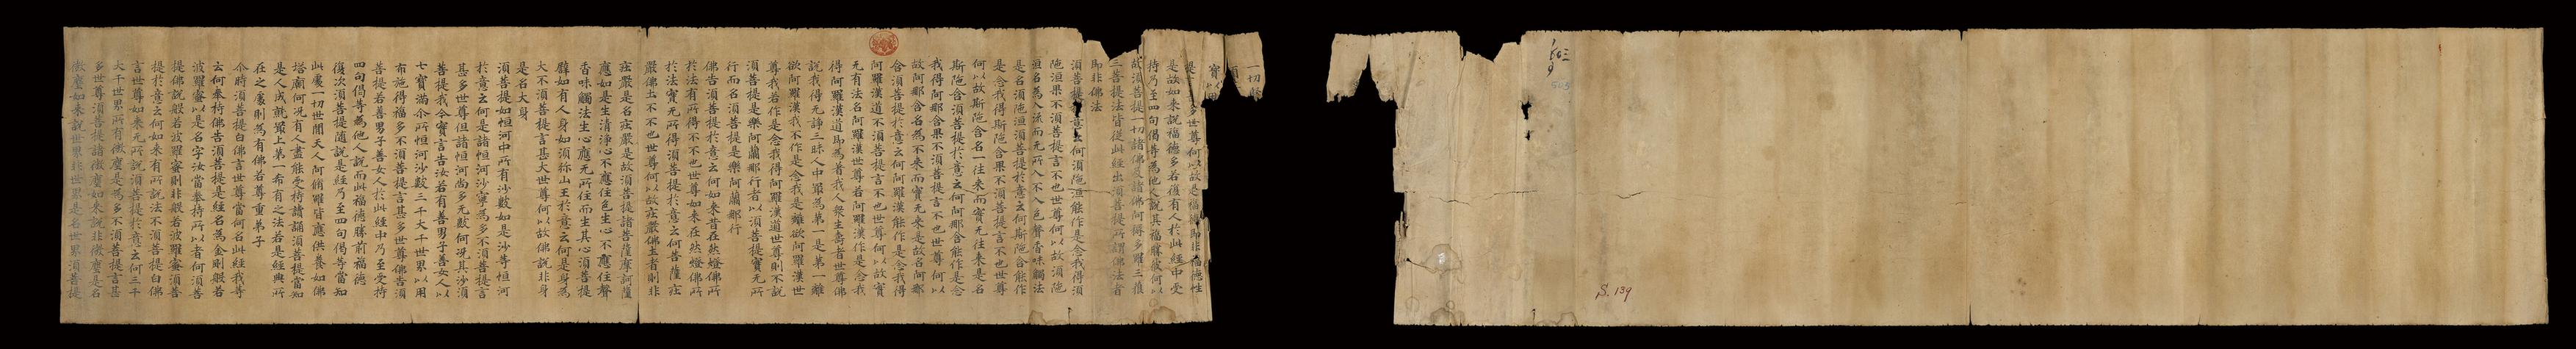 一切
須
寶以用
是多世尊何以故是福德即非福德性
是故如来說福德多若復有人於此經中受
持乃至四句偈等為他人說其福勝彼何以
故須菩提一切諸佛及諸佛阿耨多羅三藐
三菩提法皆從此經出須菩提所謂佛法者
即非佛法
須菩提於意云何須陁洹能作是念我得須
陁洹果不須菩提言不也世尊何以故須陁
洹名為入流而无所入不入色聲香味觸法
是名須陁洹須菩提於意云何斯陁含能作
是念我得斯陁含果不須菩提言不也世尊
何以故斯陁含名一往来而實无往来是名
斯陁含須菩提於意云何阿那含能作是念
我得阿那含果不須菩提言不也世尊何以
故阿那含名為不来而實无来是故名阿那
含須菩提於意云何阿羅漢能作是念我得
阿羅漢道不須菩提言不也世尊何以故實
无有法名阿羅漢世尊若阿羅漢作是念我
得阿羅漢道即為著我人衆生壽者世尊佛
說我得无諍三昧人中冣為第一是第一離
欲阿羅漢我不作是念我是離欲阿羅漢世
尊我若作是念我得阿羅漢道世尊則不說
須菩提是樂阿蘭那行者以須菩提實无所
行而名須菩提是樂阿蘭那行
佛告須菩提於意云何如来昔在然燈佛所
於法有所得不不也世尊如来在然燈佛所
於法實无所得須菩提於意云何菩薩莊
嚴佛土不不也世尊何以故莊嚴佛土者則非
莊嚴是名莊嚴是故須菩提諸菩薩摩訶薩
應如是生清淨心不應住色生心不應住聲
香味觸法生心應无所住而生其心須菩提
譬如有人身如須弥山王於意云何是身為
大不須菩提言甚大世尊何以故佛說非身
是名大身
須菩提如恒河中所有沙數如是沙等恒河
於意云何是諸恒河沙寧為多不須菩提言
甚多世尊但諸恒河尚多无數何况其沙須
菩提我今實言告汝若有善男子善女人以
七寶滿尒所恒河沙數三千大千世界以用
布施得福多不須菩提言甚多世尊佛告須
菩提若善男子善女人於此經中乃至受持
四句偈等為他人說而此福德勝前福德
復次須菩提隨說是經乃至四句偈等當知
此處一切世閒天人阿脩羅皆應供養如佛
塔廟何况有人盡能受持讀誦須菩提當知
是人成就冣上第一希有之法若是經典所
在之處則為有佛若尊重弟子
尒時須菩提白佛言世尊當何名此經我等
云何奉持佛告須菩提是經名為金剛般若
波羅蜜以是名字汝當奉持所以者何須菩
提佛說般若波羅蜜則非般若波羅蜜須菩
提於意云何如来有所說法不須菩提白佛
言世尊如来无所說須菩提於意云何三千
大千世界所有微塵是為多不須菩提言甚
多世尊須菩提諸微塵如来說非微塵是名
微塵如来說世界非世界是名世界須菩提
S. 139